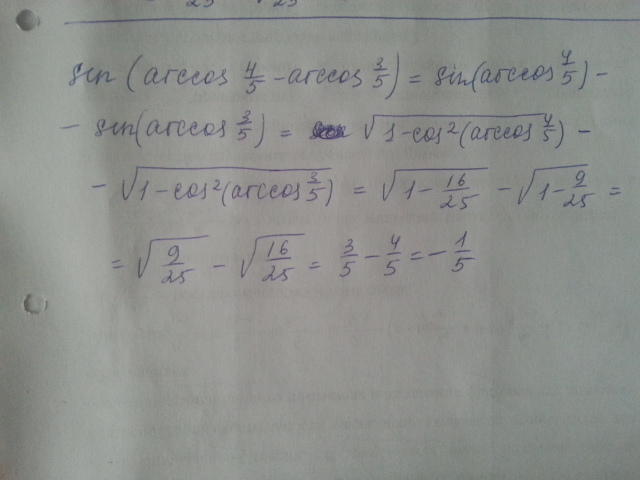 sin (arccos 4/5 - arccos 3/5) = sin(arccos 4/5) -
- sin(arccos 3/5) = √(1-cos²(arccos 4/5)) -
- √(1-cos²(arccos 3/5)) = √(1 - 16/25) - √(1 - 9/25) =
= √(9/25) - √(16/25) = 3/5 - 4/5 = - 1/5